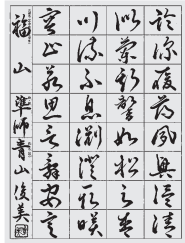 臨深履薄夙興温凊
似蘭斯馨如松之盛
川流不息淵澄取映
容止若思言辭安定
福山 準師 青山俊美